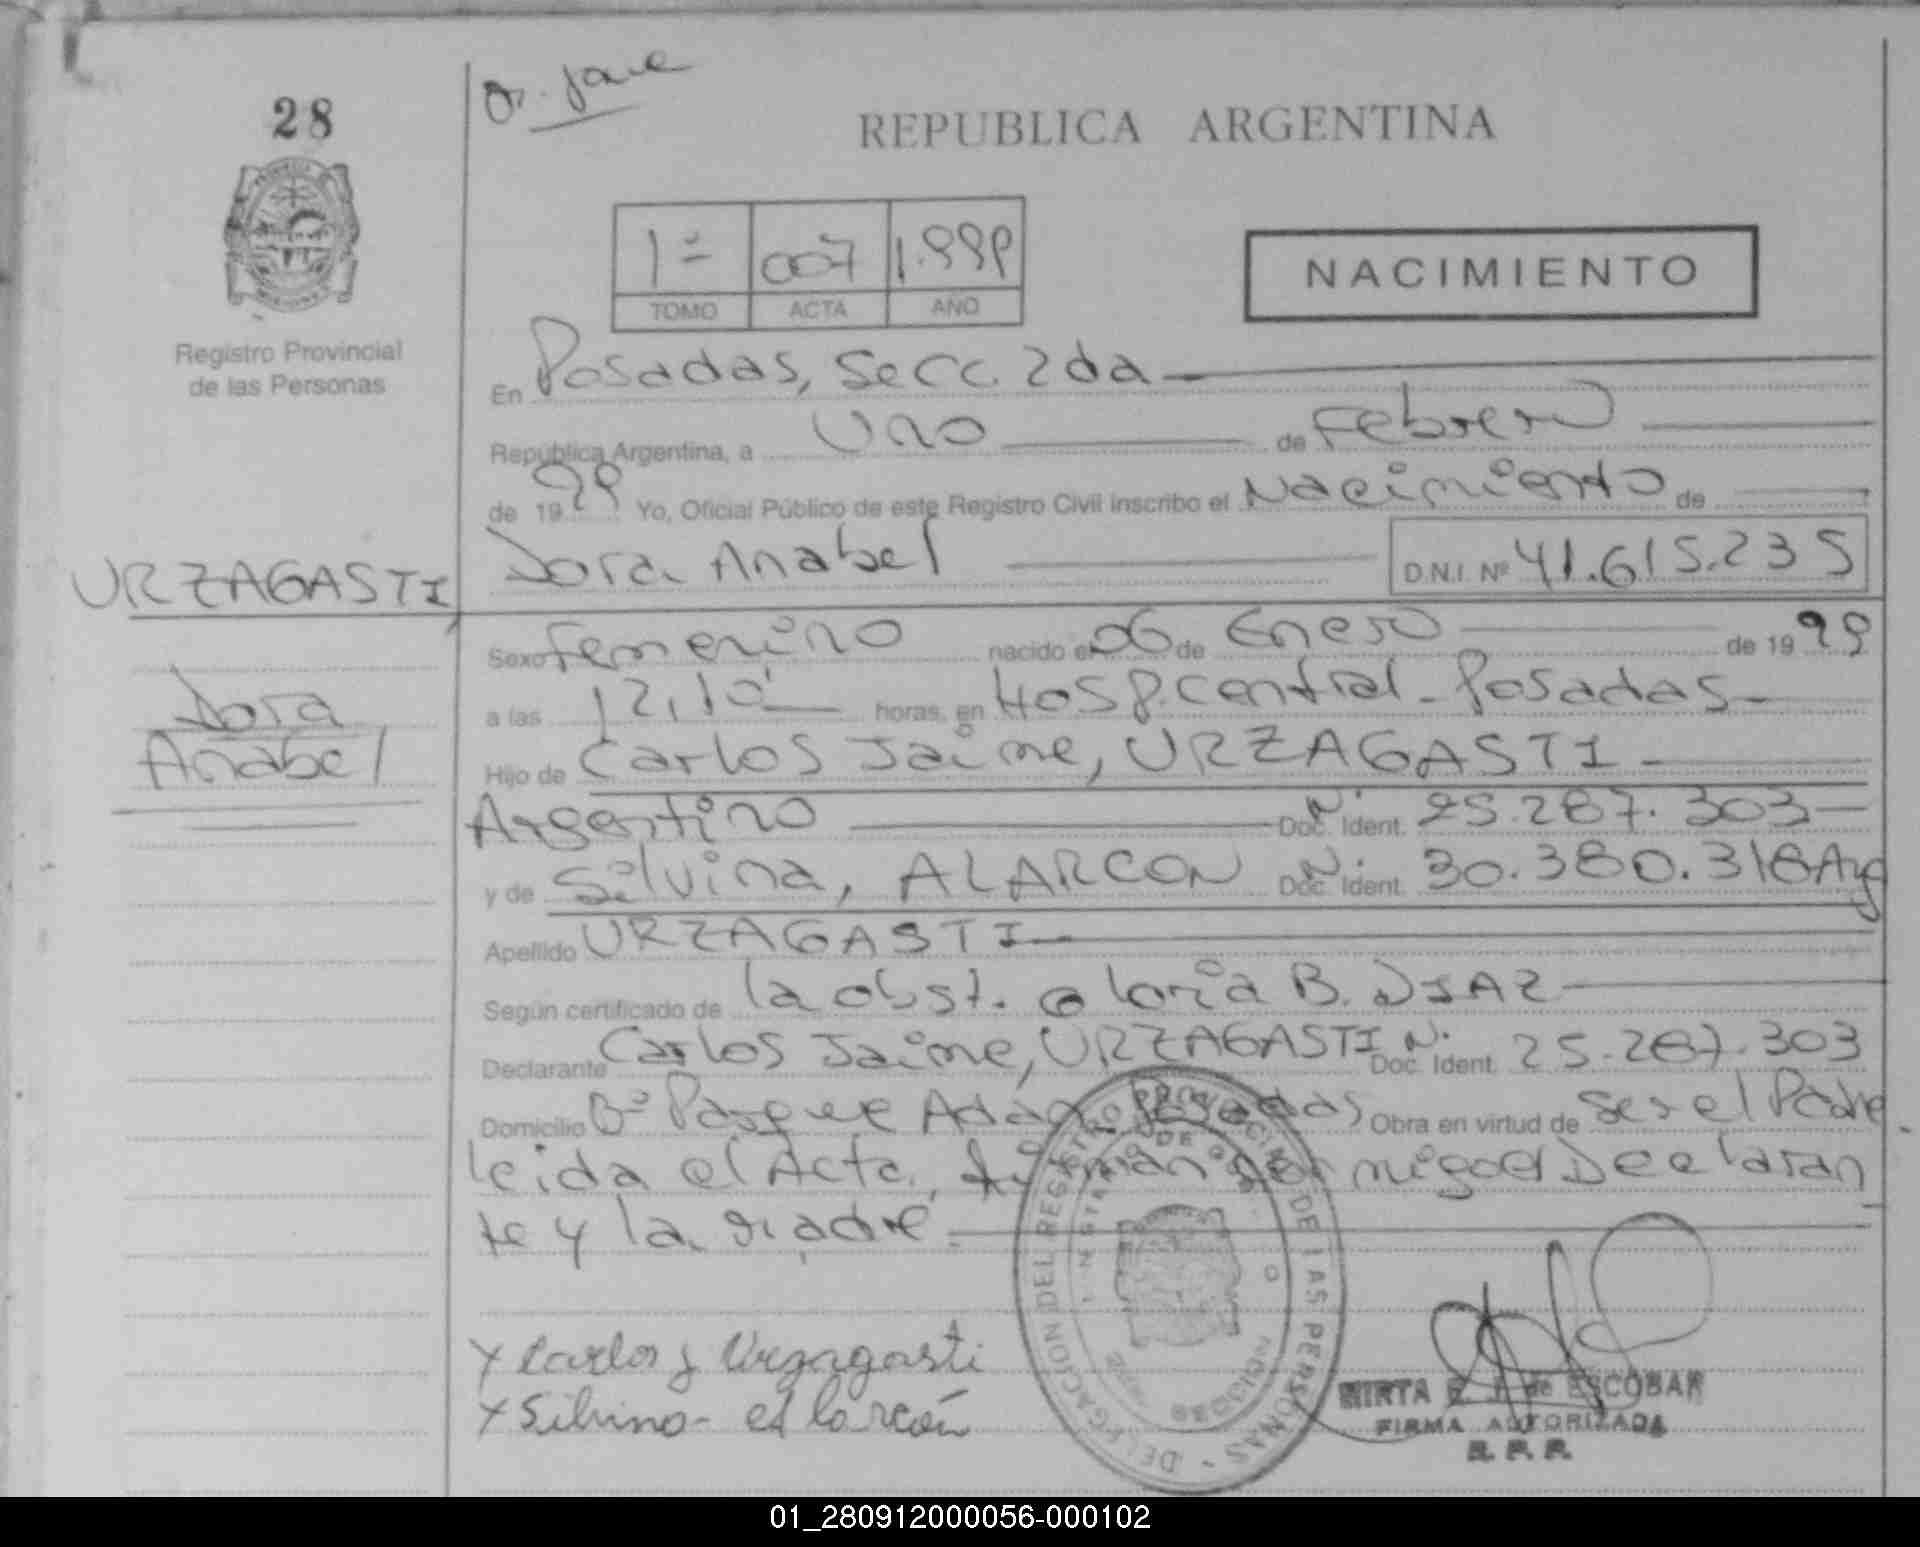 28
REPUBLICA ARGENTINA
1º 007 1.999
TOMO ACTA AÑO
NACIMIENTO
Registro Provincial
de las Personas
En Posadas, Secc. 2da
República Argentina, a uno de Febrero
de 1999 Yo, Oficial Público de este Registro Civil inscribo el Nacimiento de
URZAGASTI, Dora Anabel D.N.I. Nº 41.615.235
Dora
Anabel
Sexo femenino nacido el 06 de Enero de 1999
a las 12,10 horas, en Hosp. Central - Posadas
Hijo de Carlos Jaime, URZAGASTI
Argentino Doc. Ident. N. 25.287.303
y de Silvina, ALARCON Doc. Ident. N. 30.380.318 Arg
Apellido URZAGASTI
Según certificado de la obst. Gloria B. DIAZ
Declarante Carlos Jaime, URZAGASTI Doc. Ident. N. 25.287.303
Domicilio Bº Parque Adam Posadas Obra en virtud de ser el Padre
leida el Acta, firman conmigo el Declaran
te y la madre
x Carlos J Urzagasti
x Silvina alarcón
DELEGACION DEL REGISTRO PROVINCIAL DE LAS PERSONAS
MIRTA de ESCOBAR
FIRMA AUTORIZADA
R. P. P.
01_280912000056-000102